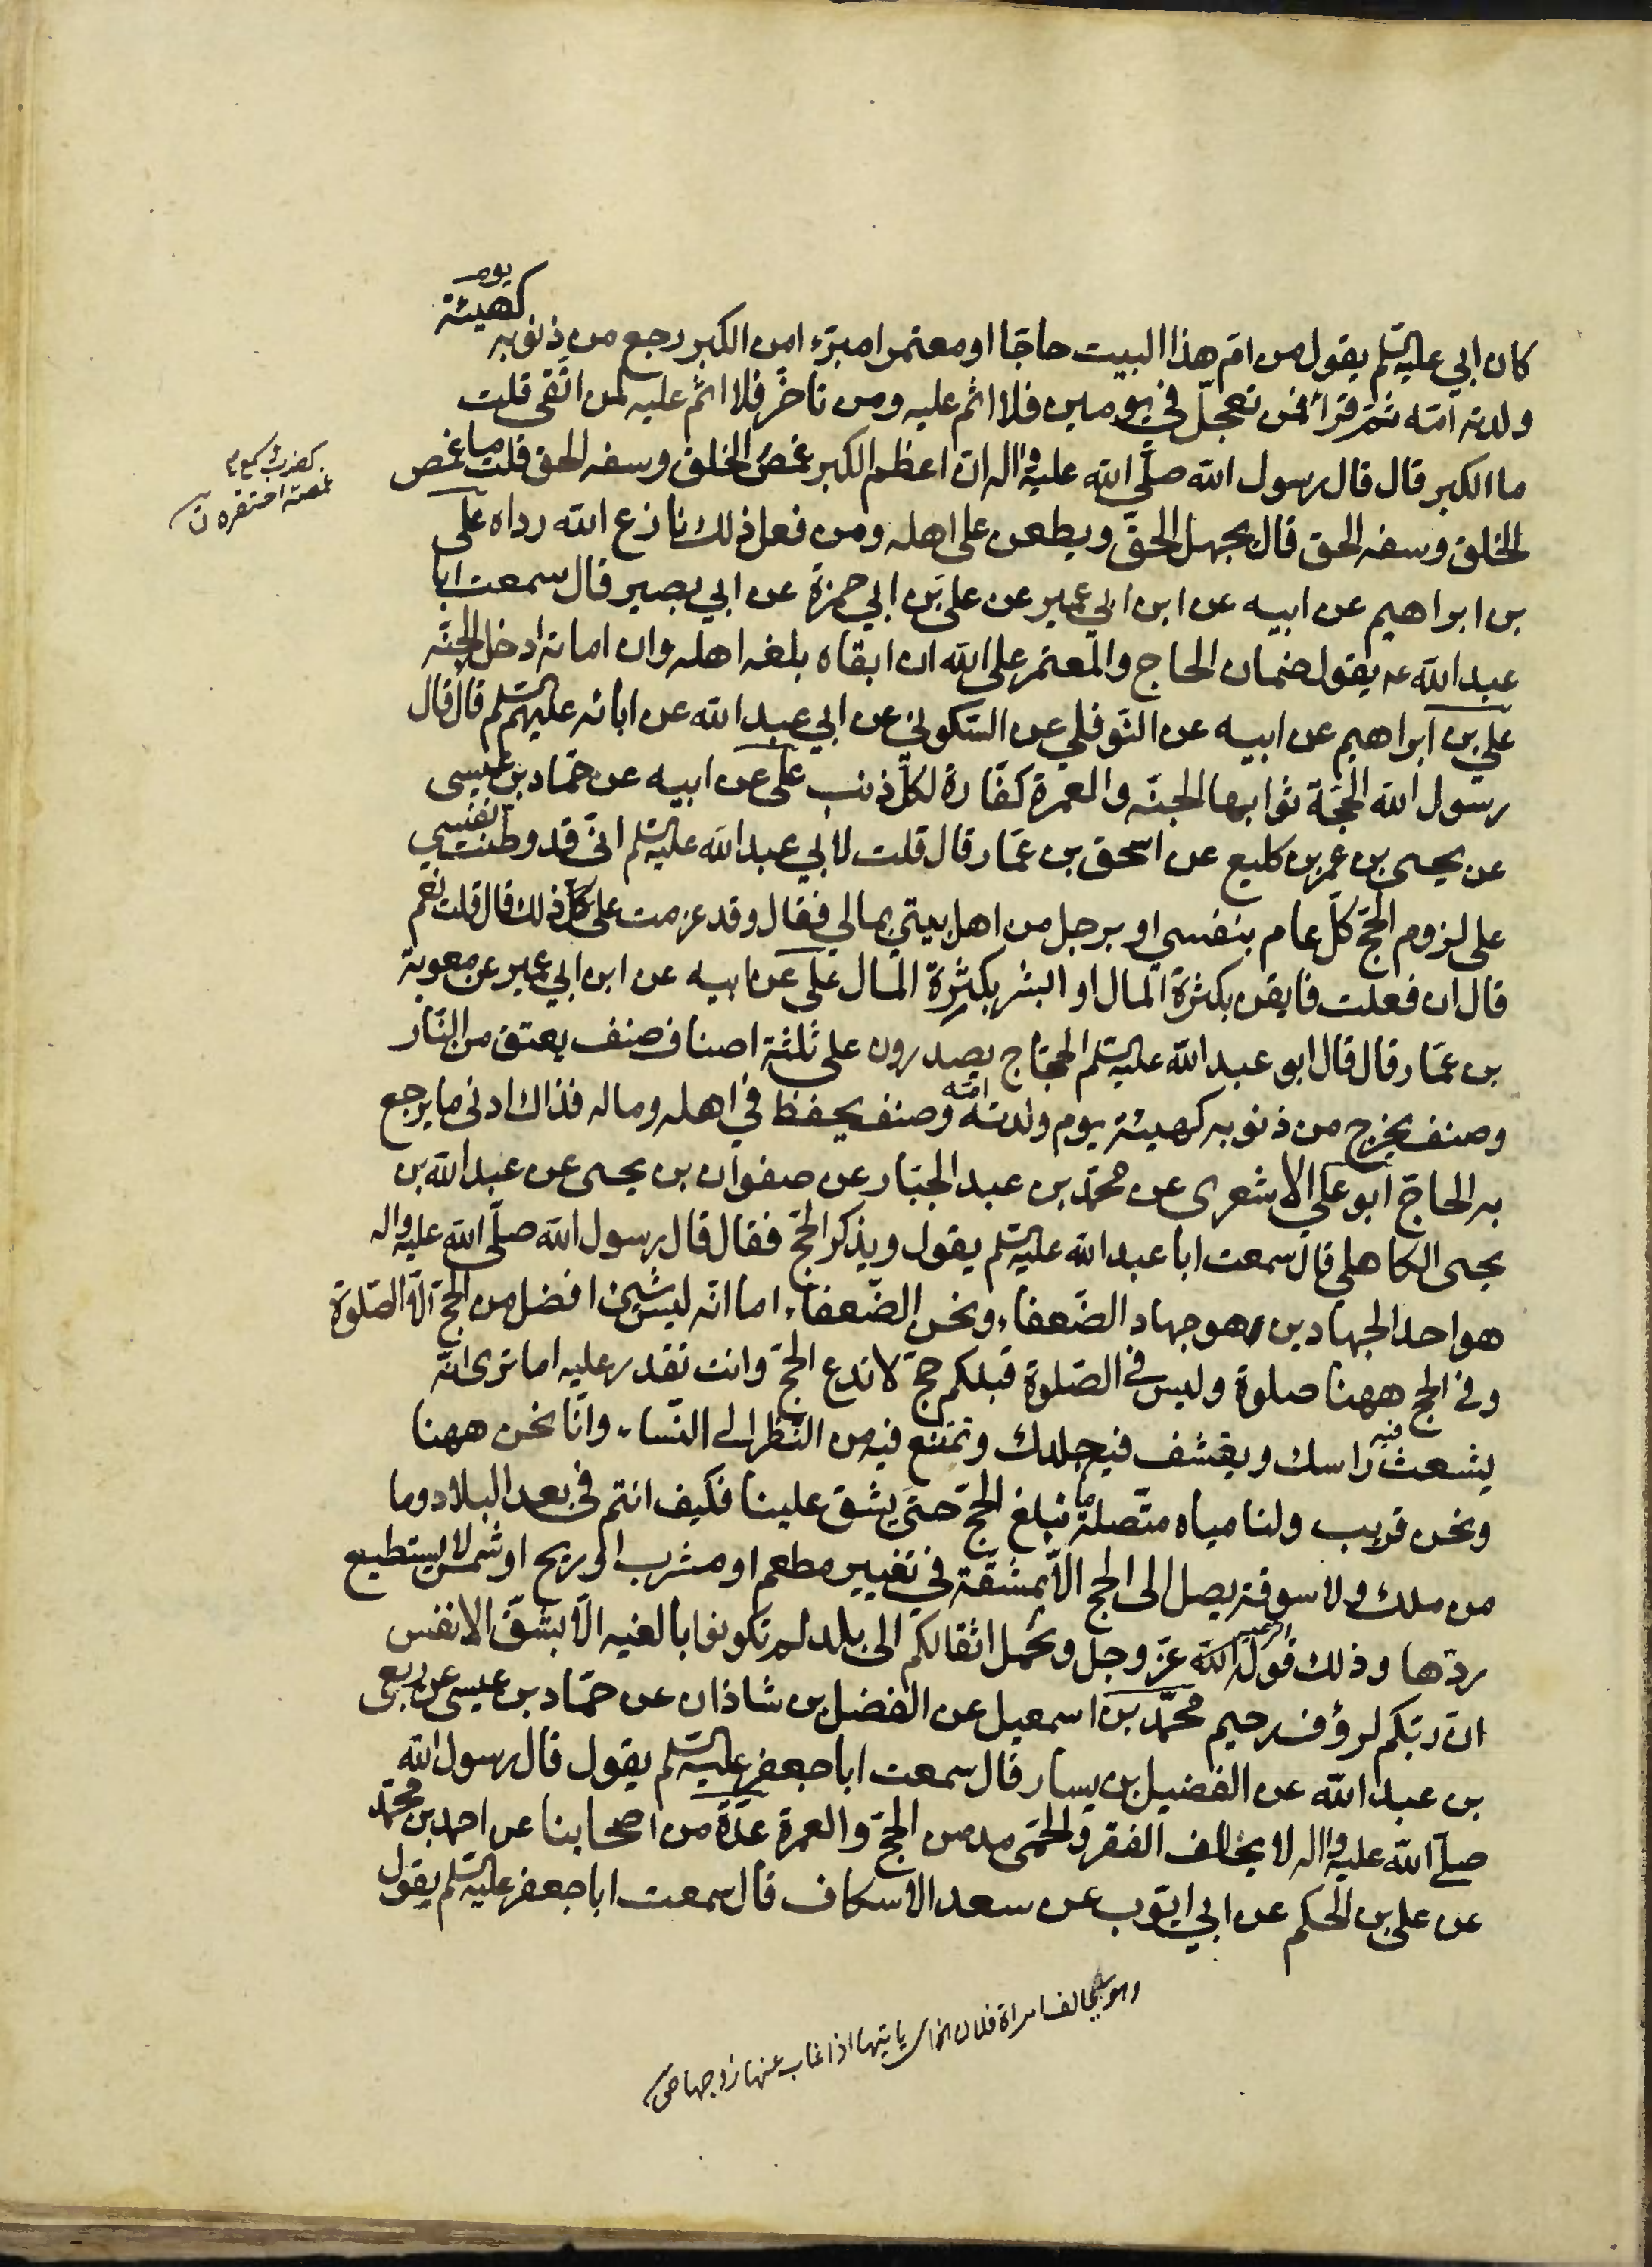 كان ابي عليه السلم يقول من ام هذا البيت حاجّا او معتمرا مبرّءا من الكبر رجع من ذنوبه كهيئة يوم
ولدته امّه ثمّ قرأ فمن تعجّل في يومين فلا اثم عليه ومن تاخّر فلا اثم عليه لمن اتّقى قلت
ما الكبر قال قال رسول الله صلّى الله عليه واله ان اعظم الكبر غمص الخلق وسفه الحق قلت ما غمص
الخلق وسفه الحق قال يجهل الحقّ ويطعن على اهله ومن فعل ذلك نازع الله رداه علي
بن ابراهيم عن ابيه عن ابن ابي عمير عن علي بن ابي حمزة عن ابي بصير قال سمعت ابا
عبد الله عه يقول ضمان الحاج والمعتمر على الله ان ابقاه بلغه اهله وان اماته ادخله الجنّه
علي بن ابراهيم عن ابيه عن النّوفلي عن السّكوني عن ابي عبد الله عن ابائه عليهم السلم قال قال
رسول الله الحجّة ثوابها الجنّه والعمرة كفّارة لكلّ ذنب علي عن ابيه عن حمّاد بن عيسى
عن يحيى بن عمر بن كليع عن اسحق بن عمّار قال قلت لابي عبد الله عليه السلم انّي قد وطنت نفسي
على لزوم الحجّ كلّ عام بنفسي او برجل من اهل بيتي بمالي فقال وقد عزمت على ذلك قال قلت نعم
قال ان فعلت فايقن بكثرة المال او ابشر بكثرة المال علي عن ابيه عن ابن ابي عمير عن معوية
بن عمّار قال قال ابو عبد الله عليه السلم الحجّاج يصدرون على ثلثة اصناف صنف يعتق من النّار
وصنف يخرج من ذنوبه كهيئة يوم ولدته امّه وصنف يحفظ في اهله وماله فذاك ادنى ما يرجع
به الحاجّ ابو علي الاشعرى عن محمّد بن عبد الجبّار عن صفوان بن يحيى عن عبد الله بن
يحيى الكاهلي قال سمعت ابا عبد الله عليه السلم يقول ويذكر الحجّ فقال قال رسول الله صلّى الله عليه واله
هو احد الجهادين هو جهاد الضّعفاء ونحن الضّعفاء اما انّه ليس شيئ افضل من الحجّ الّا الصّلوة
وفي الحج ههنا صلوة وليس في الصّلوة قبلكم حجّ لا تدع الحجّ وانت تقدر عليه اما ترى انّه
يشعث فيه راسك ويقشف فيه جلدك وتمتنع فيه من النّظر الى النّساء وانّا نحن ههنا
ونحن قريب ولنا مياه متّصلة ما نبلغ الحجّ حتى يشق علينا فكيف انتم في بعد البلاد وما
من ملك ولا سوقة يصل الى الحج الّا بمشقّة في تغيير مطعم او مشرب او ريح او شمس لا يستطيع
ردّها وذلك قول الله عزّ وجل وتحمل اثقالكم الى بلد لم تكونوا بالغيه الّا بشقّ الانفس
انّ ربّكم لرؤف رحيم محمّد بن اسمعيل عن الفضل بن شاذان عن حمّاد بن عيسى عن ربعي
بن عبد الله عن الفضيل بن يسار قال سمعت ابا جعفر عليه السلم يقول قال رسول الله
صلّى الله عليه واله لا يخالف الفقر والحمّى مدمن الحجّ والعمرة عدّة من اصحابنا عن احمد بن محمّد
عن علي بن الحكم عن ابي ايّوب عن سعد الاسكاف قال سمعت ابا جعفر عليه السلم يقول
غمصه احتقره ق
وهو يخالف امراة فلان اى ياتيها اذا غاب عنها زوجها ص